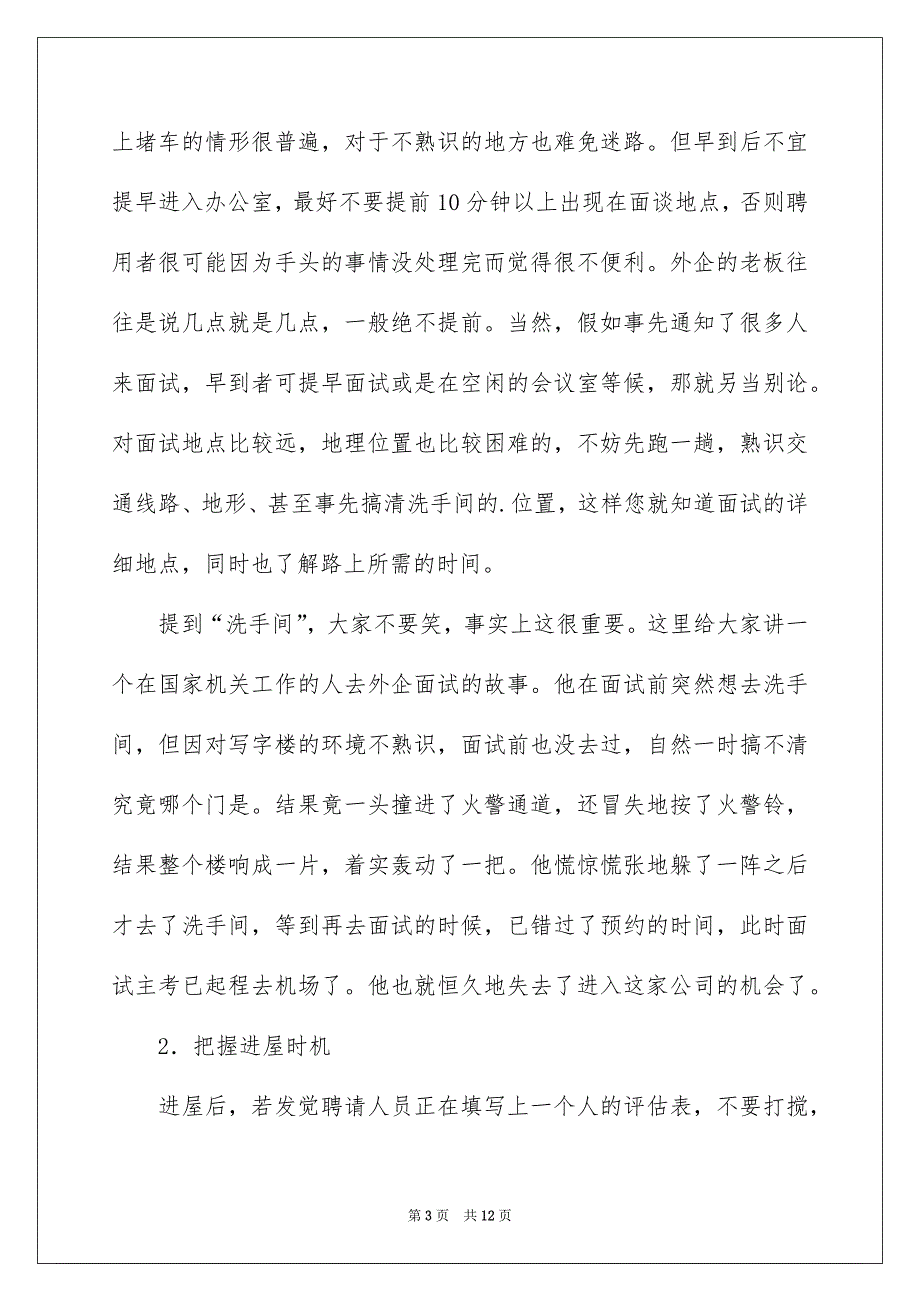 上堵车的情形很普遍，对于不熟识的地方也难免迷路。但早到后不宜
提早进入办公室，最好不要提前10分钟以上出现在面谈地点，否则聘
用者很可能因为手头的事情没处理完而觉得很不便利。外企的老板往
往是说几点就是几点，一般绝不提前。当然，假如事先通知了很多人
来面试，早到者可提早面试或是在空闲的会议室等候，那就另当别论。
对面试地点比较远，地理位置也比较困难的，不妨先跑一趟，熟识交
通线路、地形、甚至事先搞清洗手间的.位置，这样您就知道面试的详
细地点，同时也了解路上所需的时间。
提到“洗手间”，大家不要笑，事实上这很重要。这里给大家讲一
个在国家机关工作的人去外企面试的故事。他在面试前突然想去洗手
间，但因对写字楼的环境不熟识，面试前也没去过，自然一时搞不清
究竟哪个门是。结果竟一头撞进了火警通道，还冒失地按了火警铃，
结果整个楼响成一片，着实轰动了一把。他慌惊慌张地躲了一阵之后
才去了洗手间，等到再去面试的时候，已错过了预约的时间，此时面
试主考已起程去机场了。他也就恒久地失去了进入这家公司的机会了。
2．把握进屋时机
进屋后，若发觉聘请人员正在填写上一个人的评估表，不要打搅，
第3页 共12页